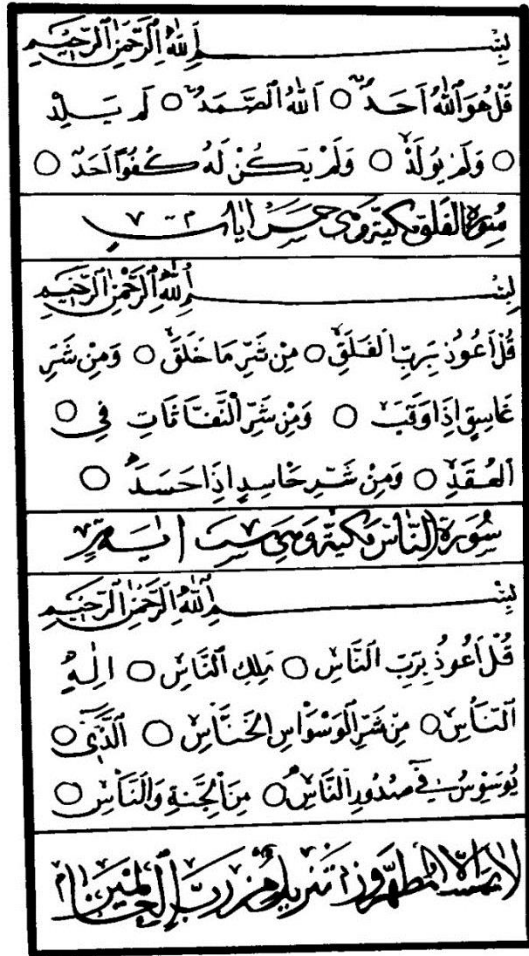 بِسْمِ اللّٰهِ الرَّحْمٰنِ الرَّحِيْمِ
قُلْ هُوَ اللّٰهُ اَحَدٌ ○ اَللّٰهُ الصَّمَدُ ○ لَمْ يَلِدْ
○ وَلَمْ يُولَدْ ○ وَلَمْ يَكُنْ لَهُ كُفُوًا اَحَدٌ ○
سُورَة الفَلَق مكية وهي خمس ايات
بِسْمِ اللّٰهِ الرَّحْمٰنِ الرَّحِيْمِ
قُلْ اَعُوذُ بِرَبِّ الفَلَقِ ○ مِنْ شَرِّ مَا خَلَقَ ○ وَمِنْ شَرِّ
غَاسِقٍ اِذَا وَقَبَ ○ وَمِنْ شَرِّ النَّفَّاثَاتِ فِي ○
العُقَدِ ○ وَمِنْ شَرِّ حَاسِدٍ اِذَا حَسَدَ ○
سُورَة النَّاس مكية وهي ست ايات
بِسْمِ اللّٰهِ الرَّحْمٰنِ الرَّحِيْمِ
قُلْ اَعُوذُ بِرَبِّ النَّاسِ ○ مَلِكِ النَّاسِ ○ اِلٰهِ
النَّاسِ ○ مِنْ شَرِّ الوَسْوَاسِ الخَنَّاسِ ○ الَّذِي ○
يُوَسْوِسُ فِي صُدُورِ النَّاسِ ○ مِنَ الجِنَّةِ وَالنَّاسِ ○
لا يمسه الا المطهرون تنزيل من رب العالمين